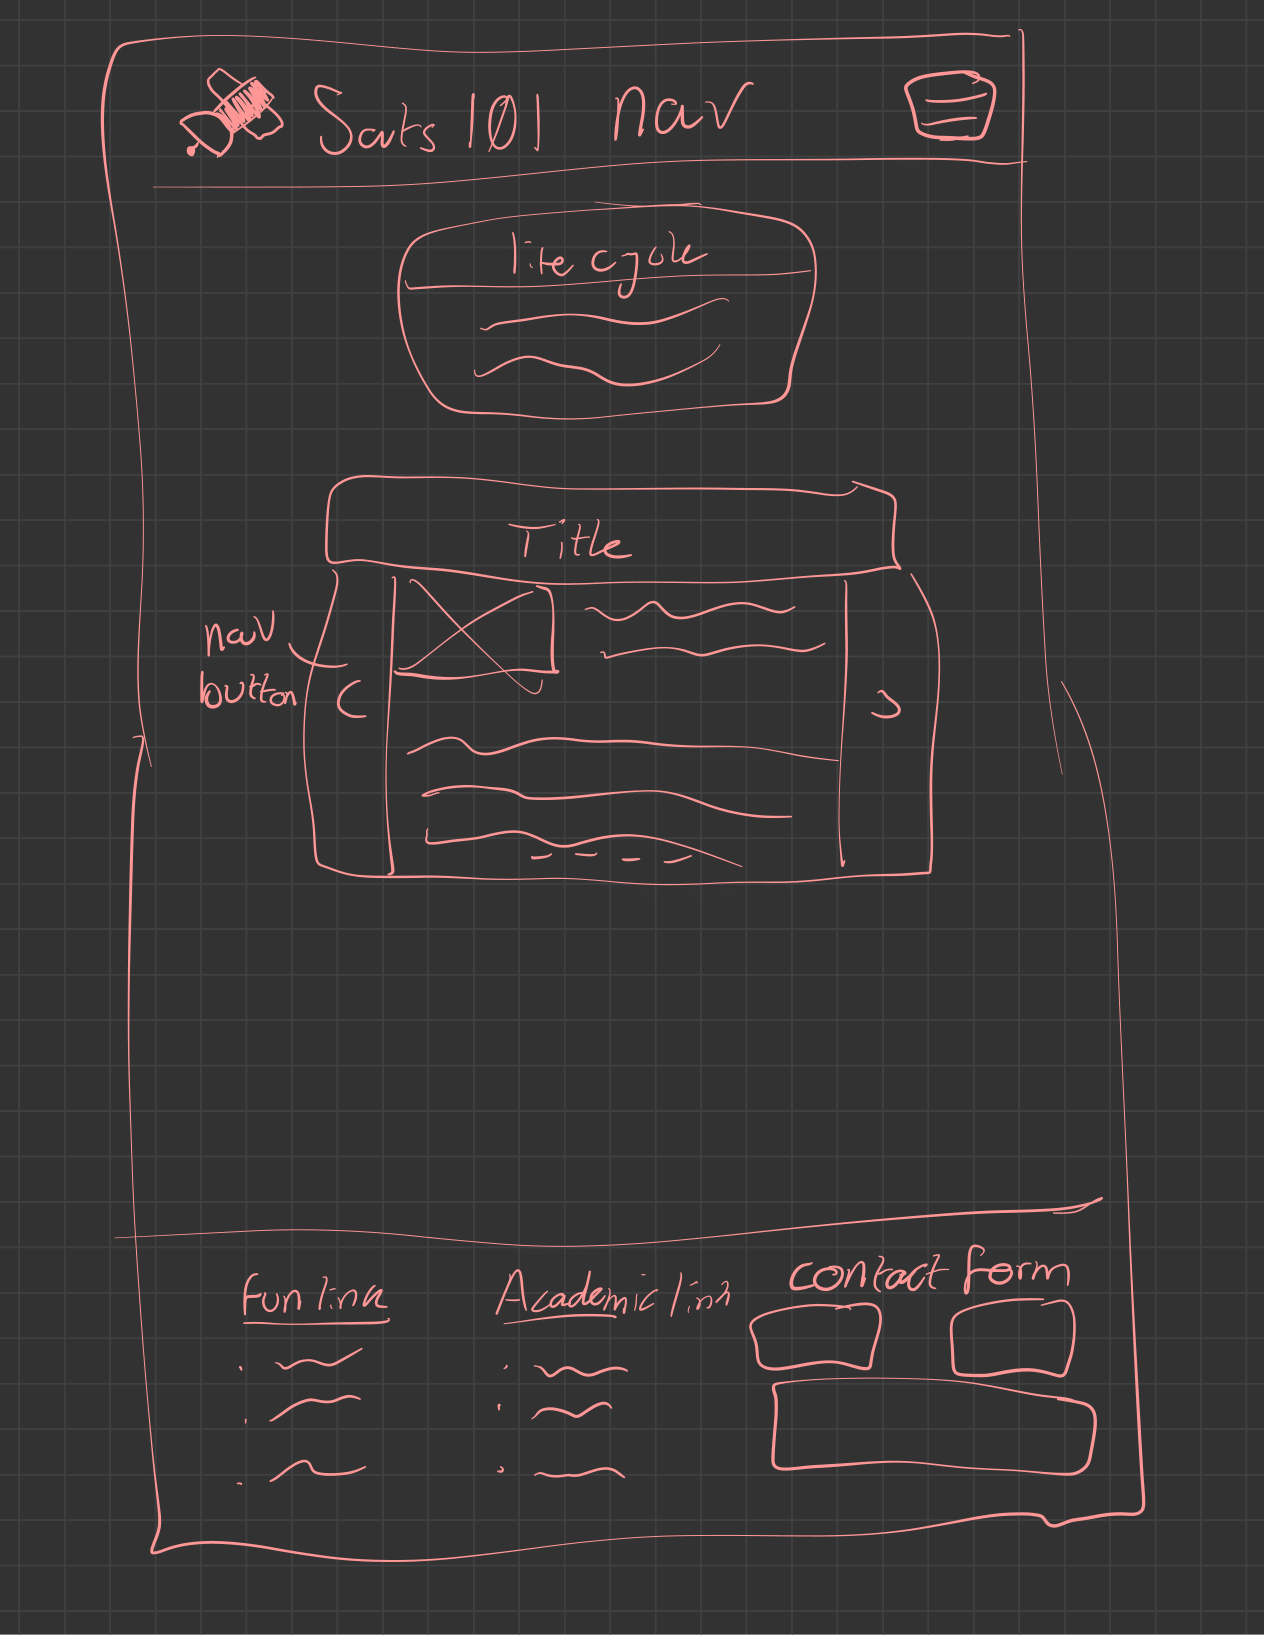 Sats 101 nav
life cycle
Title
nav
button
Fun link
Academic link
Contact form